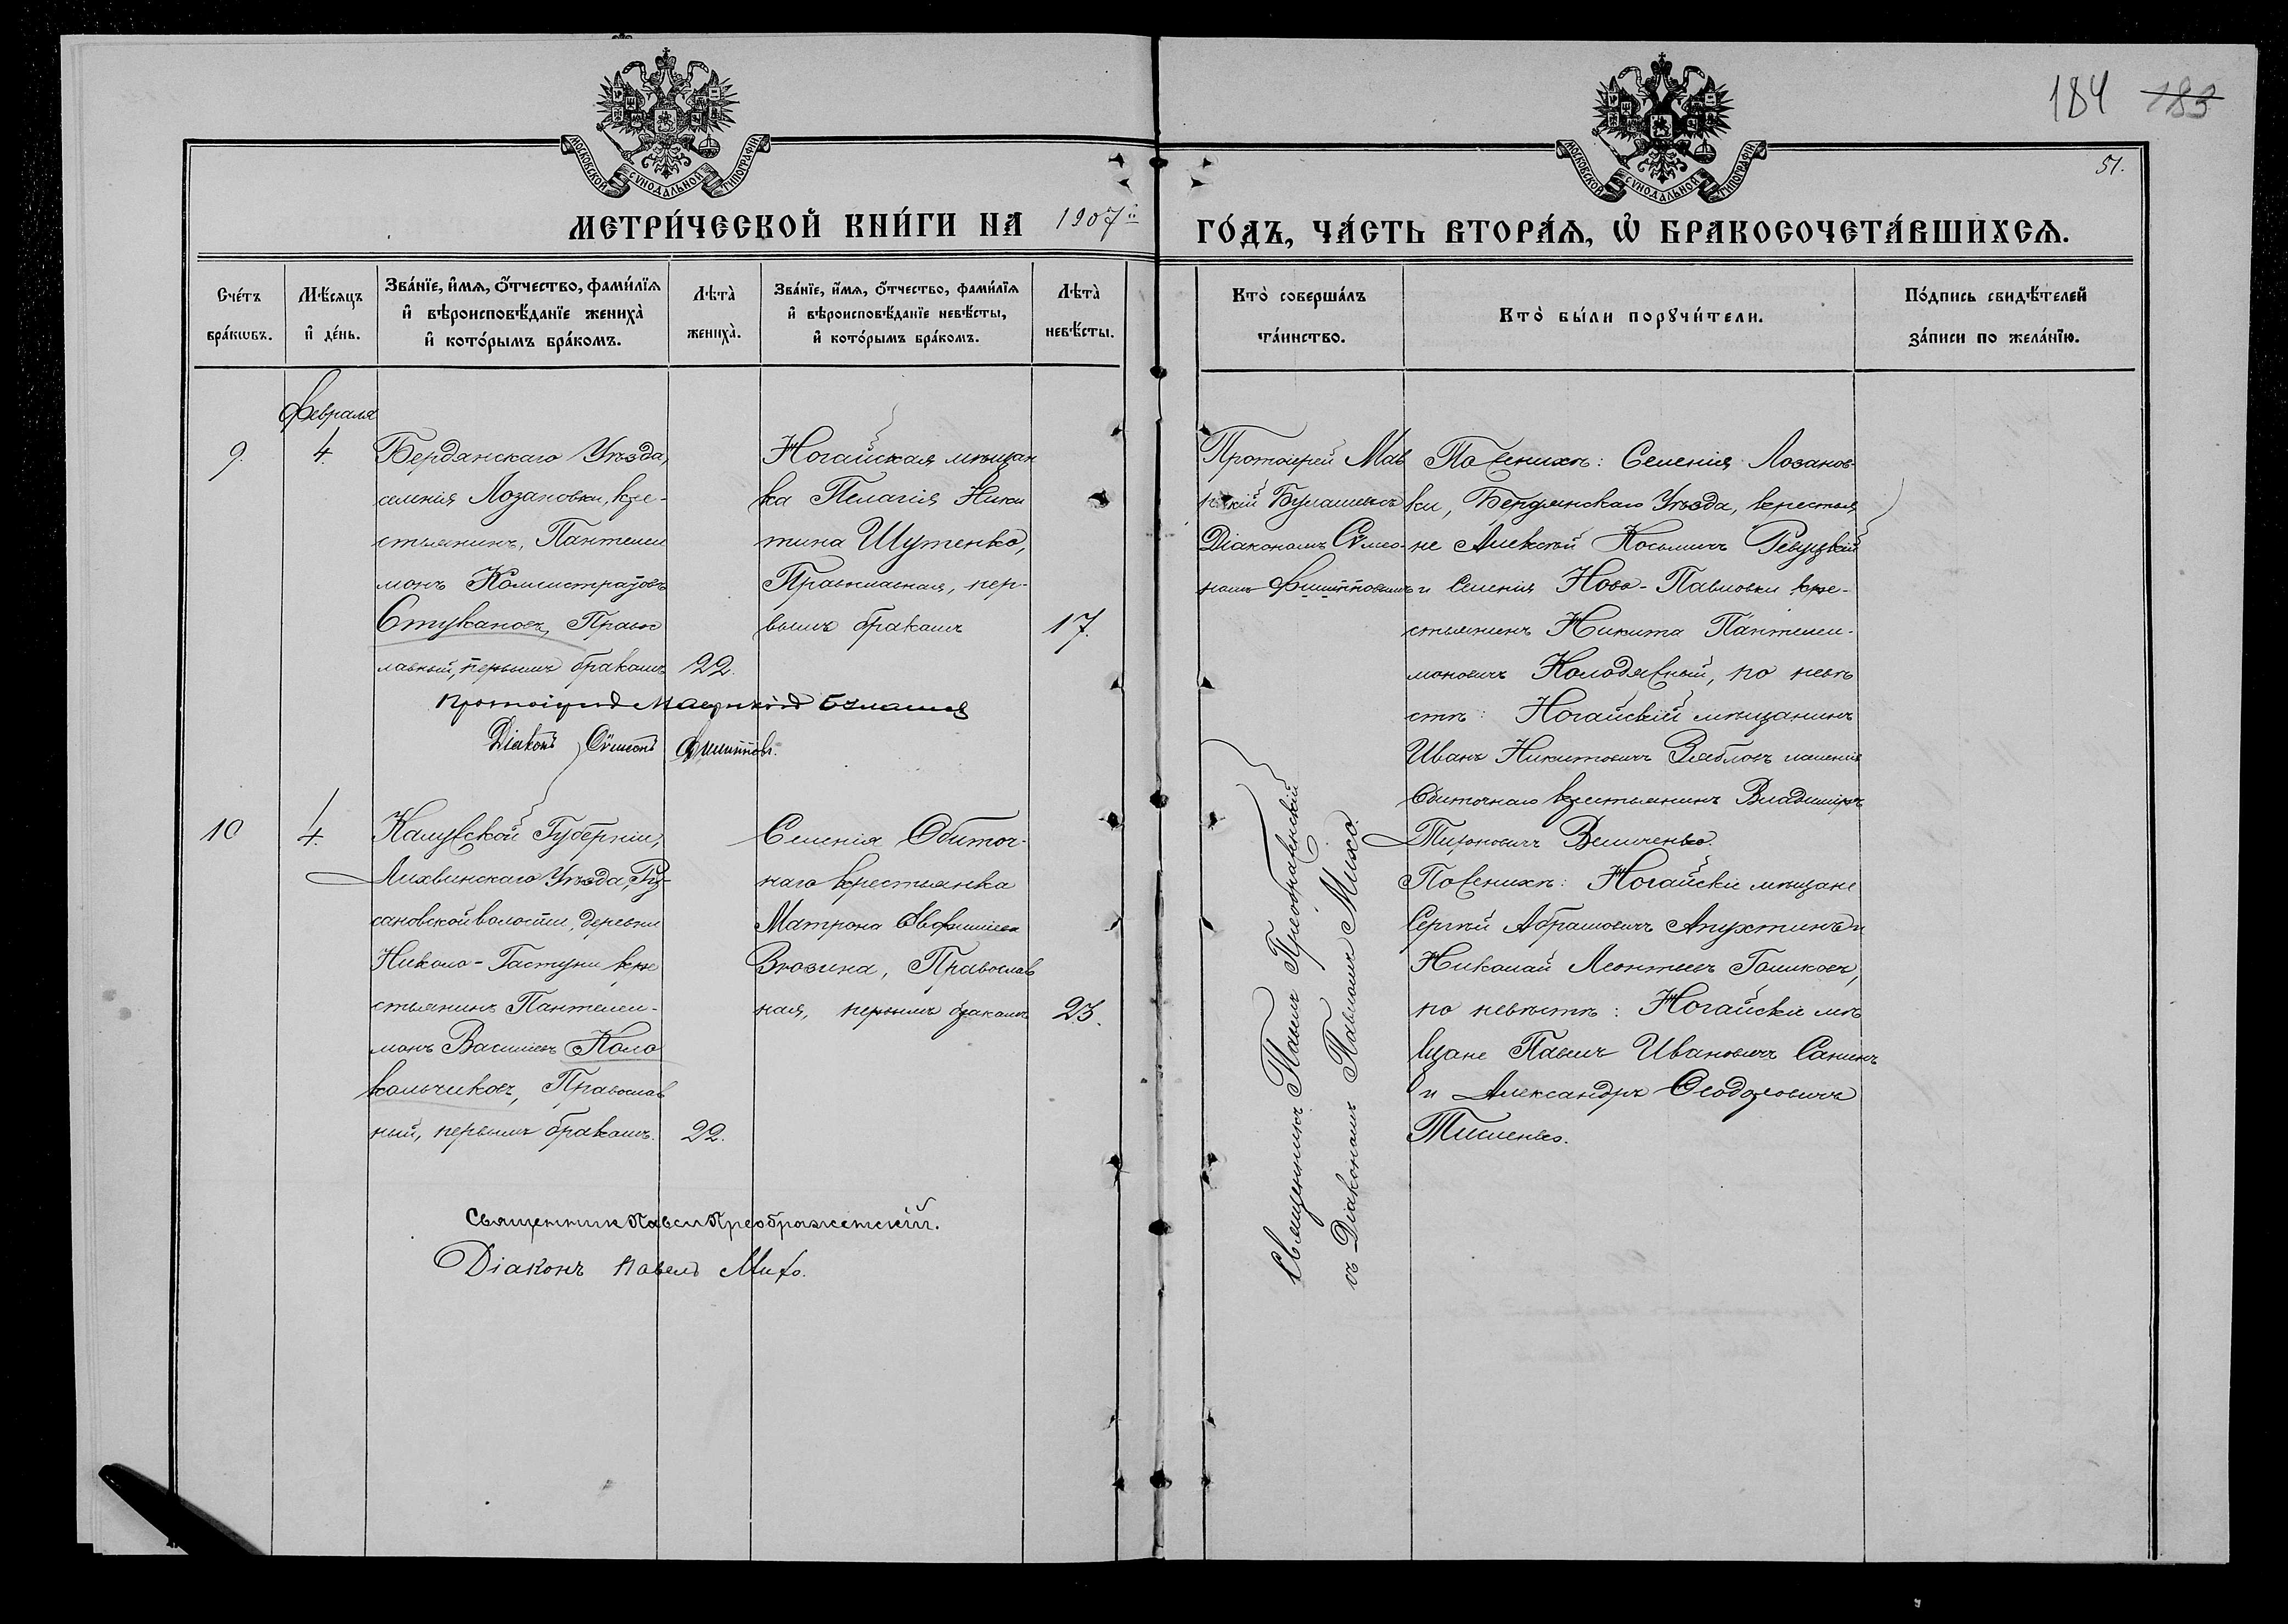 184 183
51.
МОСКОВСКОЙ СУНОДАЛЬНОЙ ТИПОГРАФІИ
МОСКОВСКОЙ СУНОДАЛЬНОЙ ТИПОГРАФІИ
МЕТРИ́ЧЕСКОЙ КНИ́ГИ НА 1907й ГО́ДЪ, ЧА́СТЬ ВТОРА́Ѧ, Ѡ҆ БРАКОСОЧЕТА́ВШИХСѦ.
Сче́тъ
бра́кѡвъ.
Мѣ́сяцъ
и҆ де́нь.
Зва́нїе, и҆́мѧ, ѻ҆́тчество, фами́лїѧ
и҆ вѣроисповѣ́данїе жениха̀
и҆ кото́рымъ бра́комъ.
Лѣта̀
жениха̀.
Зва́нїе, и҆́мѧ, ѻ҆́тчество, фами́лїѧ
и҆ вѣроисповѣ́данїе невѣ́сты,
и҆ кото́рымъ бра́комъ.
Лѣта̀
невѣ́сты.
Кто̀ соверша́лъ
та́инство.
Кто̀ бы́ли порꙋчи́тели.
По́дпись свидѣ́телей
за́писи по жела́нїю.
Февраля
9.
4.
Бердянскаго Уѣзда,
селенія Лозановки, кре-
стьянинъ, Пантелеи
монъ Каллистратовъ
Стукановъ, Правос
лавный, первымъ бракомъ
22.
Ногайская мѣщан
ка Пелагія Ники
тина Шутенко,
Православная, пер-
вымъ бракомъ
17.
Протоіерей Мав
рикій Булашевъ съ
Діакономъ Сѵмео-
номъ Филипповымъ
По женихѣ: Селенія Лозанов-
ки, Бердянскаго Уѣзда, крестья
не Алексѣй Косьмичъ Ревуцкій
и Селенія Ново-Павловки кре-
стьянинъ Никита Пантелеи-
моновичъ Колодяжный, по невѣ
стѣ: Ногайскій мѣщанинъ
Иванъ Никитовичъ Зябловъ и селенія
Обиточнаго крестьянинъ Владиміръ
Тихоновичъ Величенко.
Протоіерей Маврикій Булашев
Діаконъ Сѵмеонъ Филипповъ.
10
4.
Калужской Губерніи,
Лихвинскаго Уѣзда, Ру-
сановской волости, деревни
Николо-Гастуни кре
стьянинъ Пантелеи-
монъ Васильевъ Коло
кольчиковъ, Православ
ный, первымъ бракомъ.
22.
Селенія Обиточ-
наго крестьянка
Матрона Евфимиева
Вюзина, Православ
ная, первымъ бракомъ
23.
Священникъ Павелъ Преображенскій
съ Діакономъ Павломъ Михо.
По женихѣ: Ногайскіе мѣщане
Сергѣй Абрамовичъ Апухтинъ и
Николай Леонтьевъ Голиковъ,
по невѣстѣ: Ногайскіе мѣ
щане Павелъ Ивановичъ Санинъ
и Александръ Ѳеодоровичъ
Тишенко.
Священник Павел Преображенскій.
Діаконъ Павелъ Михо.